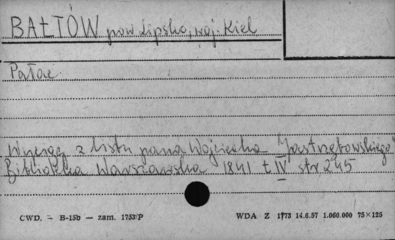 BAŁTÓW pow. Lipsko, woj. Kiel
Pałac
Wyciąg z listu pana Wojciecha Jastrzębowskiego"
Biblioteka Warszawska 1841 t. IV str 245
CWD. - B-15b — zam. 1753/P WDA Z 1773 14.6.57 1.060.000 75×125